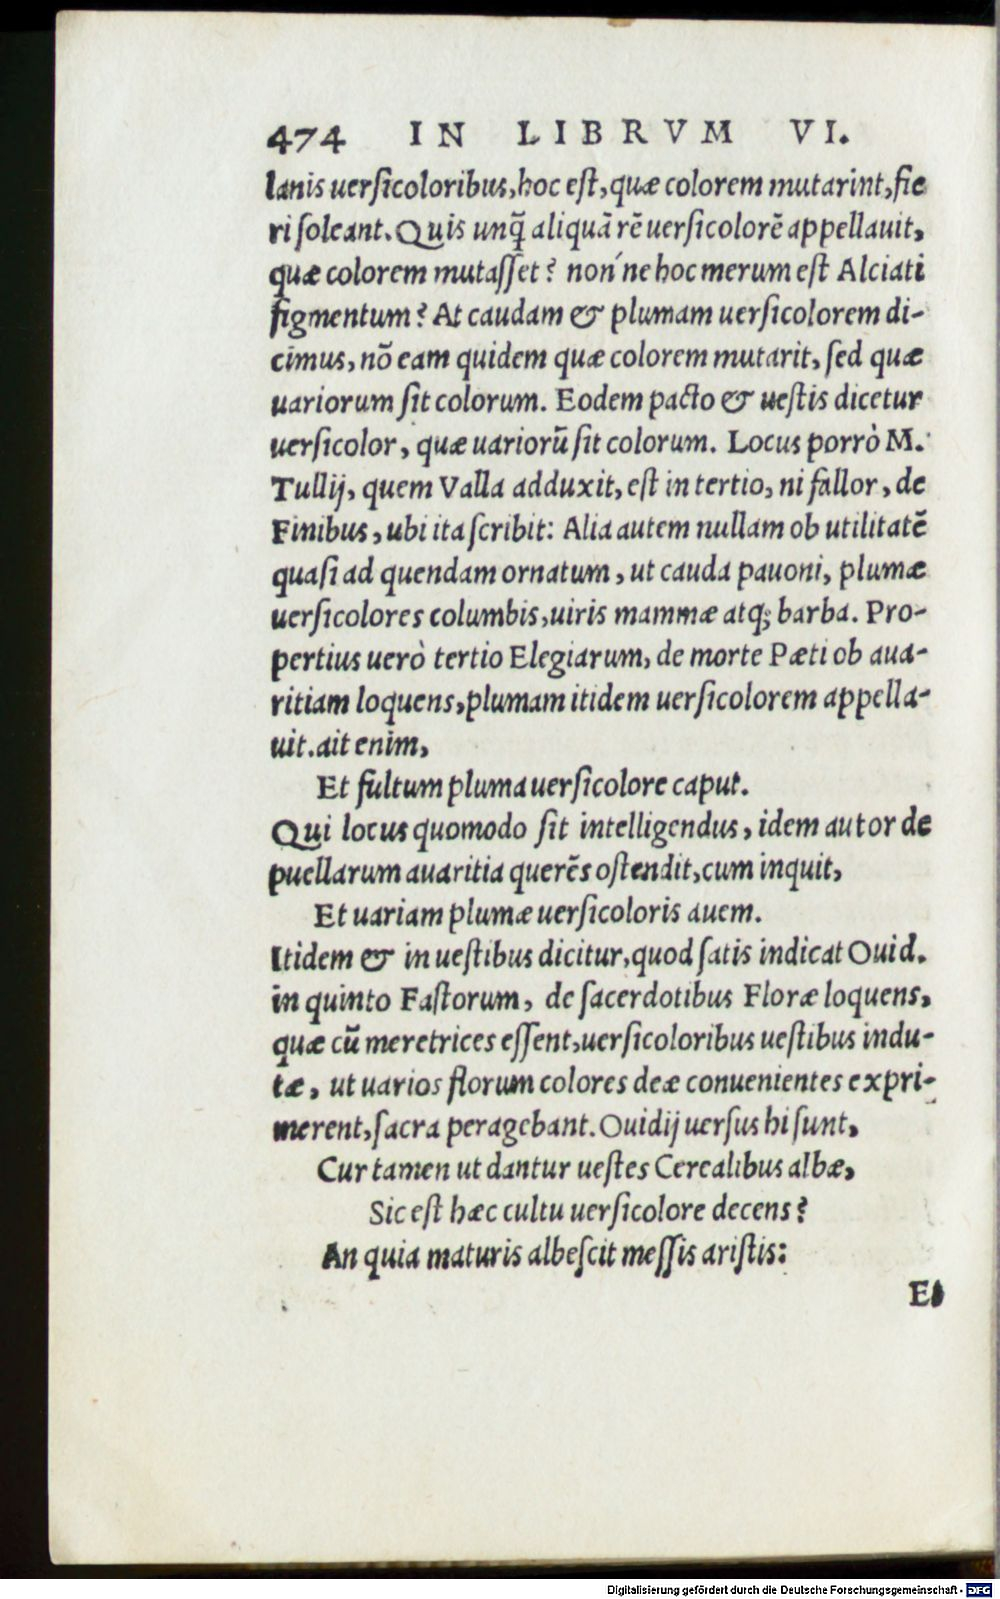 474 IN LIBRVM VI.
lanis uersicoloribus, hoc est, quæ colorem mutarint, fie
ri soleant. Quis unq̃ aliquã rẽ uersicolorẽ appellauit,
quæ colorem mutasset? non´ne hoc merum est Alciati
figmentum? At caudam & plumam uersicolorem di-
cimus, nõ eam quidem quæ colorem mutarit, sed quæ
uariorum sit colorum. Eodem pacto & uestis dicetur
uersicolor, quæ uariorũ sit colorum. Locus porrò M.
Tullij, quem Valla adduxit, est in tertio, ni fallor, de
Finibus, ubi ita scribit: Alia autem nullam ob utilitatẽ
quasi ad quendam ornatum, ut cauda pauoni, plumæ
uersicolores columbis, uiris mammæ atq; barba. Pro-
pertius uerò tertio Elegiarum, de morte Pæti ob aua-
ritiam loquens, plumam itidem uersicolorem appella-
uit. ait enim,
Et fultum pluma uersicolore caput.
Qui locus quomodo sit intelligendus, idem autor de
puellarum auaritia querẽs ostendit, cum inquit,
Et uariam plumæ uersicoloris auem.
Itidem & in uestibus dicitur, quod satis indicat Ouid.
in quinto Fastorum, de sacerdotibus Floræ loquens,
quæ cũ meretrices essent, uersicoloribus uestibus indu-
tæ, ut uarios florum colores deæ conuenientes expri-
merent, sacra peragebant. Ouidij uersus hi sunt,
Cur tamen ut dantur uestes Cerealibus albæ,
Sic est hæc cultu uersicolore decens?
An quia maturis albescit messis aristis:
Digitalisierung gefördert durch die Deutsche Forschungsgemeinschaft - DFG